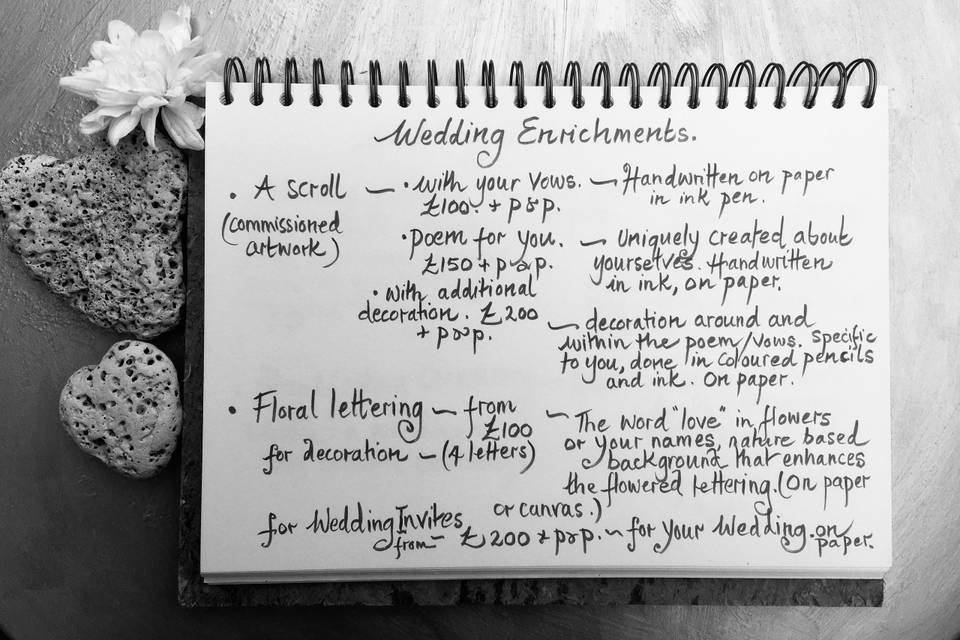 Wedding Enrichments.
• A scroll — • with your vows. — Handwritten on paper
£100. + p&p. in ink pen.
(commissioned
artwork)
• poem for you. — Uniquely created about
£150 + p&p. yourselves. Handwritten
in ink, on paper.
• with additional
decoration. £200
+ p&p.
— decoration around and
within the poem/vows. Specific
to you, done in coloured pencils
and ink. On paper.
• Floral lettering — from
£100
for decoration — (4 letters)
— The word "love" in flowers
or your names, nature based
background that enhances
the flowered lettering. (On paper
or canvas.)
for Wedding Invites
from — £200 + p&p. — for your wedding. on
paper.